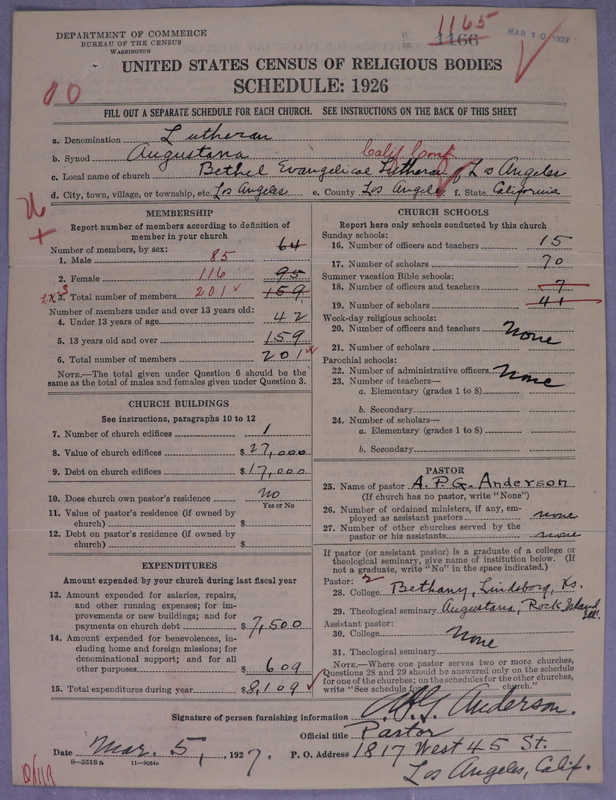 1165
1166
MAR 10 1927
DEPARTMENT OF COMMERCE
BUREAU OF THE CENSUS
WASHINGTON
UNITED STATES CENSUS OF RELIGIOUS BODIES
SCHEDULE: 1926
FILL OUT A SEPARATE SCHEDULE FOR EACH CHURCH. SEE INSTRUCTIONS ON THE BACK OF THIS SHEET
a. Denomination Lutheran
b. Synod Augustana Calif Conf
c. Local name of church Bethel Evangelical Lutheran of Los Angeles
d. City, town, village, or township, etc. Los Angeles e. County Los Angeles f. State California
MEMBERSHIP
Report number of members according to definition of
member in your church
Number of members, by sex:
1. Male 85 64
2. Female 116 95
3. Total number of members 201 159
Number of members under and over 13 years old:
4. Under 13 years of age 42
5. 13 years old and over 159
6. Total number of members 201
NOTE.—The total given under Question 6 should be
same as the total of males and females given under Question 3.
CHURCH BUILDINGS
See instructions, paragraphs 10 to 12
7. Number of church edifices 1
8. Value of church edifices $27,000
9. Debt on church edifices $17,000
10. Does church own pastor's residence no
Yes or No
11. Value of pastor's residence (if owned by
church) $
12. Debt on pastor's residence (if owned by
church) $
EXPENDITURES
Amount expended by your church during last fiscal year
13. Amount expended for salaries, repairs,
and other running expenses; for im-
provements or new buildings; and for
payments on church debt $7,500
14. Amount expended for benevolences, in-
cluding home and foreign missions; for
denominational support; and for all
other purposes $609
15. Total expenditures during year $8,109
CHURCH SCHOOLS
Report here only schools conducted by this church
Sunday schools:
16. Number of officers and teachers 15
17. Number of scholars 70
Summer vacation Bible schools:
18. Number of officers and teachers 7
19. Number of scholars 41
Week-day religious schools:
20. Number of officers and teachers None
21. Number of scholars
Parochial schools:
22. Number of administrative officers None
23. Number of teachers—
a. Elementary (grades 1 to 8)
b. Secondary
24. Number of scholars—
a. Elementary (grades 1 to 8)
b. Secondary
PASTOR
25. Name of pastor A. P. G. Anderson
(If church has no pastor, write "None")
26. Number of ordained ministers, if any, em-
ployed as assistant pastors none
27. Number of other churches served by the
pastor or his assistants none
If pastor (or assistant pastor) is a graduate of a college or
theological seminary, give name of institution below. (If
not a graduate, write "No" in the space indicated.)
Pastor: 2
28. College Bethany, Lindsborg, Ks.
29. Theological seminary Augustana, Rock Island Ill.
Assistant pastor:
30. College None
31. Theological seminary
NOTE.—Where one pastor serves two or more churches,
Questions 28 and 29 should be answered only on the schedule
for one of the churches; on the schedules for the other churches,
write "See schedule for church."
Signature of person furnishing information A. P. G. Anderson.
Official title Pastor
Date Mar. 5, 1927. P. O. Address 1817 West 45 St.
8—5518 a
Los Angeles, Calif.